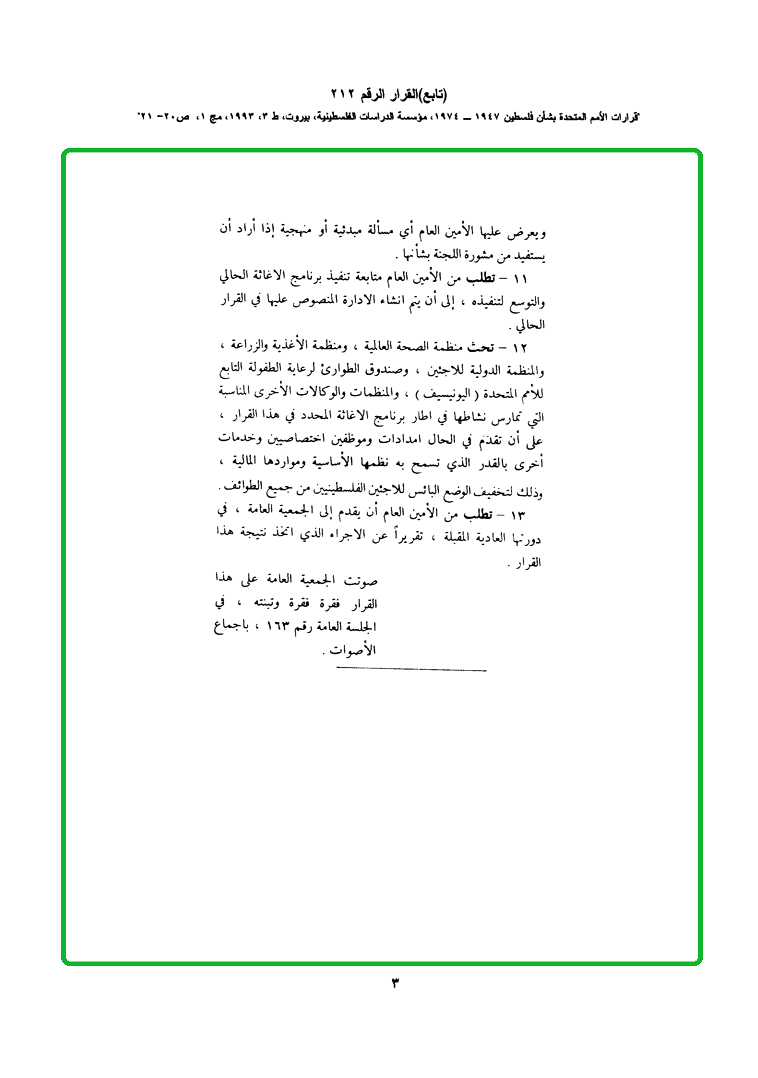 (تابع)القرار الرقم ٢١٢
"قرارات الأمم المتحدة بشأن فلسطين ١٩٤٧ ــ ١٩٧٤، مؤسسة الدراسات الفلسطينية، بيروت، ط ٣، ١٩٩٣، مج ١، ص٢٠- ٢١"
ويعرض عليها الأمين العام أي مسألة مبدئية أو منهجية إذا أراد أن
يستفيد من مشورة اللجنة بشأنها .
١١ – تطلب من الأمين العام متابعة تنفيذ برنامج الاغاثة الحالي
والتوسع لتنفيذه ، إلى أن يتم انشاء الادارة المنصوص عليها في القرار
الحالي .
١٢ – تحث منظمة الصحة العالمية ، ومنظمة الأغذية والزراعة ،
والمنظمة الدولية للاجئين ، وصندوق الطوارئ لرعاية الطفولة التابع
للأمم المتحدة ( اليونيسيف ) ، والمنظمات والوكالات الأخرى المناسبة
التي تمارس نشاطها في اطار برنامج الاغاثة المحدد في هذا القرار ،
على أن تقدم في الحال امدادات وموظفين اختصاصيين وخدمات
أخرى بالقدر الذي تسمح به نظمها الأساسية ومواردها المالية ،
وذلك لتخفيف الوضع البائس للاجئين الفلسطينيين من جميع الطوائف .
١٣ – تطلب من الأمين العام أن يقدم إلى الجمعية العامة ، في
دورتها العادية المقبلة ، تقريراً عن الاجراء الذي اتخذ نتيجة هذا
القرار .
صوتت الجمعية العامة على هذا
القرار فقرة فقرة وتبنته ، في
الجلسة العامة رقم ١٦٣ ، باجماع
الأصوات .
٣